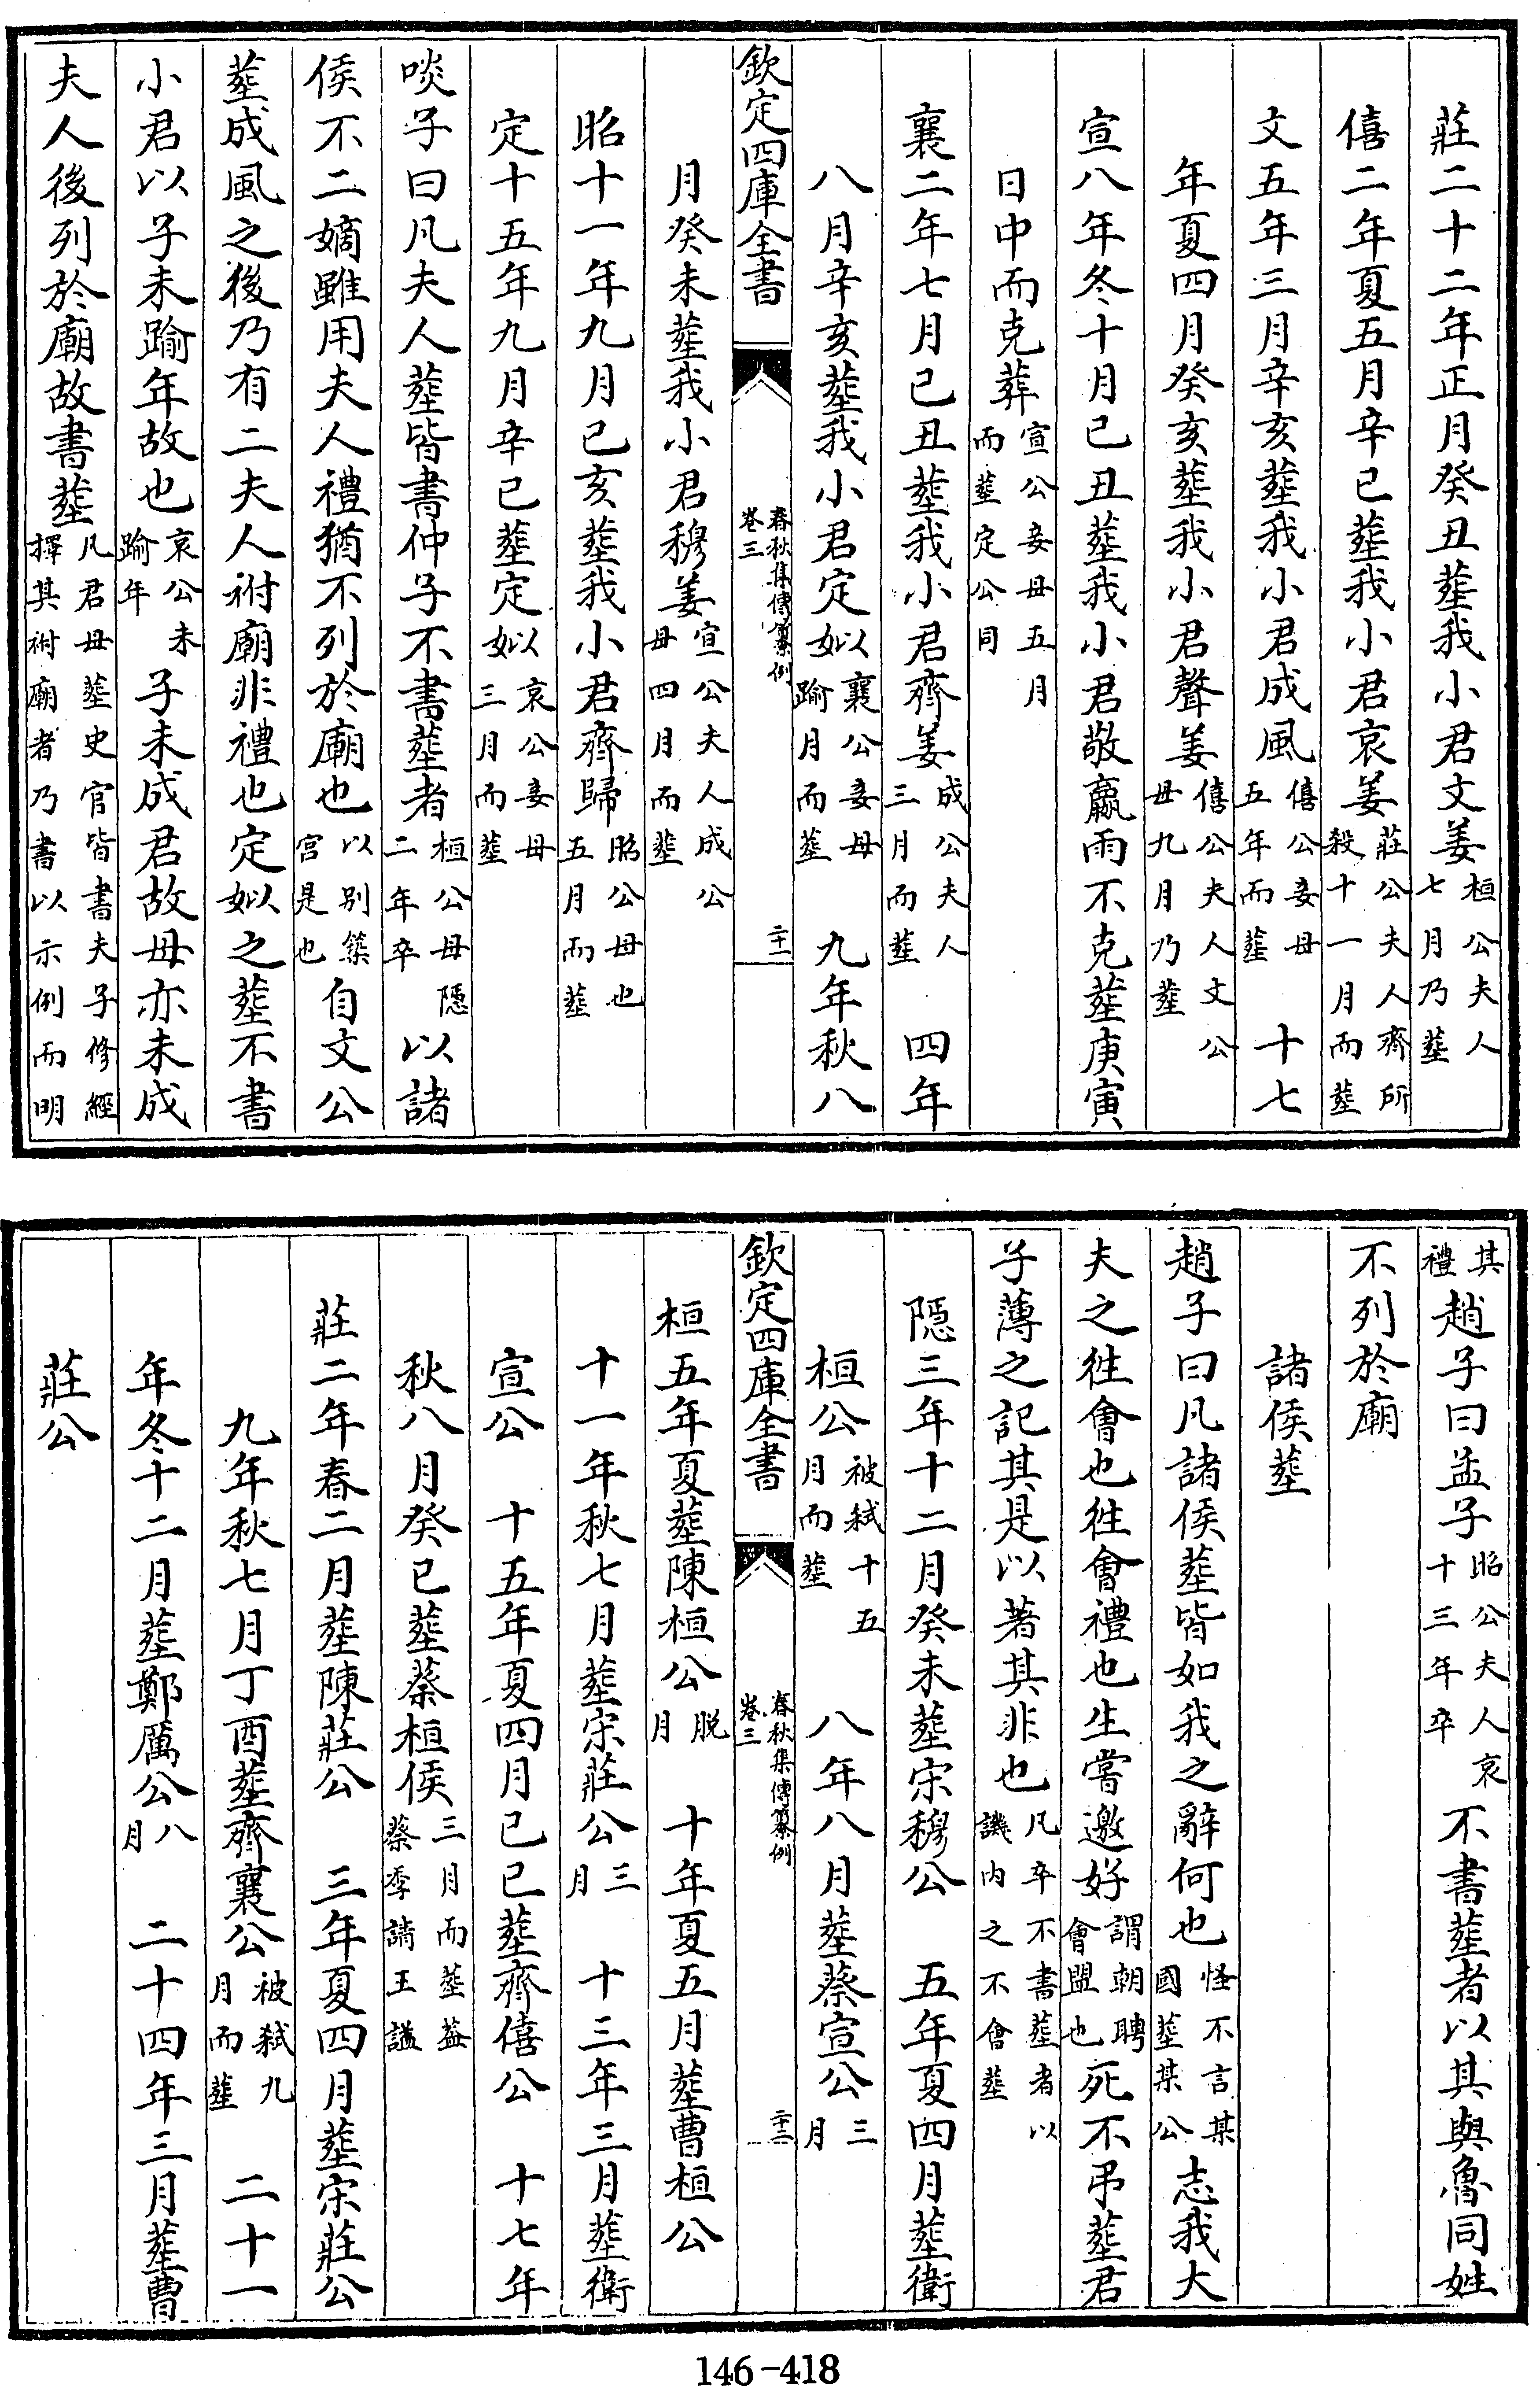 莊二十二年正月癸丑塟我小君文姜桓公夫人七月乃塟
僖二年夏五月辛巳塟我小君哀姜莊公夫人齊所殺十一月而塟
文五年三月辛亥塟我小君成風僖公妾母五年而塟　十七
年夏四月癸亥塟我小君聲姜僖公夫人文公母九月乃塟
宣八年冬十月己丑塟我小君敬嬴雨不克塟庚寅
日中而克葬宣公妾母五月而塟定公同
襄二年七月己丑塟我小君齊姜成公夫人三月而塟　四年
八月辛亥塟我小君定姒襄公妾母踰月而塟　九年秋八
欽定四庫全書
春秋集傳纂例
卷三
二十一
月癸未塟我小君穆姜宣公夫人成公母四月而塟
昭十一年九月己亥塟我小君齊歸昭公母也五月而塟
定十五年九月辛巳塟定姒哀公妾母三月而塟
啖子曰凡夫人塟皆書仲子不書塟者桓公母隱二年卒以諸
侯不二嫡雖用夫人禮猶不列於廟也以别築宫是也自文公
塟成風之後乃有二夫人祔廟非禮也定姒之塟不書
小君以子未踰年故也哀公未踰年子未成君故母亦未成
夫人後列於廟故書塟凡君母塟史官皆書夫子修經擇其祔廟者乃書以示例而明
其禮趙子曰孟子昭公夫人哀十三年卒不書塟者以其與魯同姓
不列於廟
諸侯塟
趙子曰凡諸侯塟皆如我之辭何也怪不言某國塟某公志我大
夫之徃會也徃會禮也生嘗邀好謂朝聘會盟也死不弔塟君
子薄之記其是以著其非也凡卒不書塟者以譏内之不會塟
隱三年十二月癸未塟宋穆公　五年夏四月塟衛
桓公被弑十五月而塟　八年八月塟蔡宣公三月
欽定四庫全書
春秋集傳纂例
卷三
二十二
桓五年夏塟陳桓公脱月　十年夏五月塟曹桓公
十一年秋七月塟宋莊公三月　十三年三月塟衛
宣公　十五年夏四月己巳塟齊僖公　十七年
秋八月癸巳塟蔡桓侯三月而塟蓋蔡季請王諡
莊二年春二月塟陳莊公　三年夏四月塟宋莊公
九年秋七月丁酉塟齊襄公被弑九月而塟　二十一
年冬十二月塟鄭厲公八月　二十四年三月塟曹
莊公
146-418